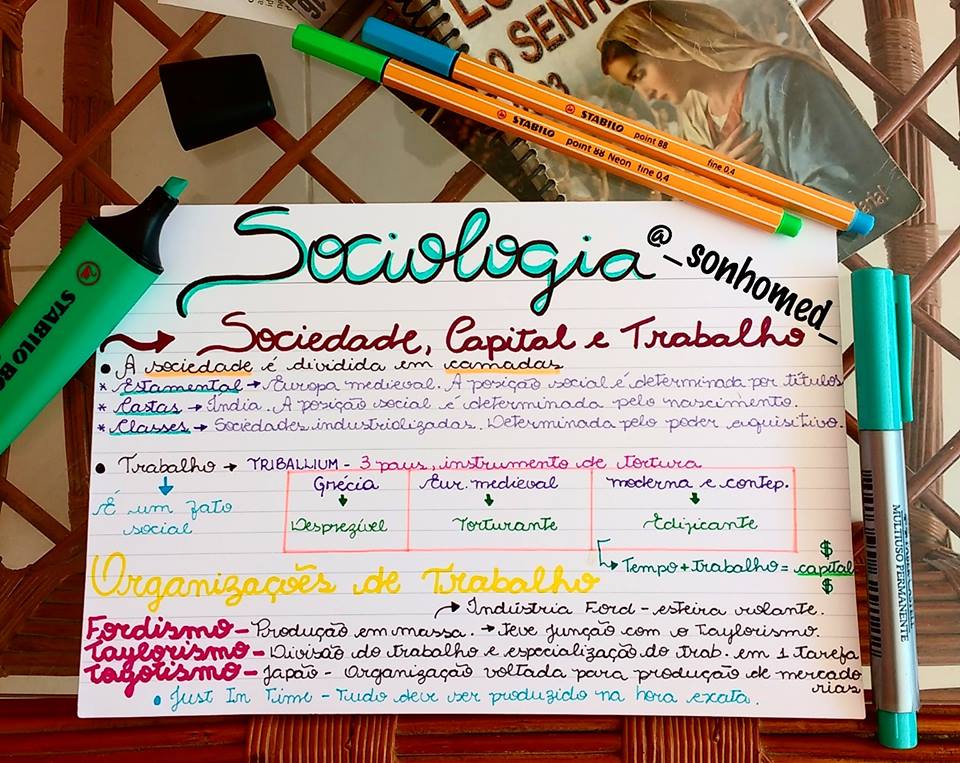 O SENHO
STABILO point 88 fine 0,4
STABILO point 88 Neon fine 0,4
STABILO BO
Sociologia
@_sonhomed_
Sociedade, Capital e Trabalho
• A sociedade é dividida em camadas
* Estamental → Europa medieval. A posição social é determinada por títulos
* Castas → Índia. A posição social é determinada pelo nascimento.
* Classes → Sociedades industrializadas. Determinada pelo poder aquisitivo.
• Trabalho → TRIBALLIUM - 3 paus, instrumento de tortura
É um fato
social
Grécia
Desprezível
Eur. medieval
Torturante
moderna e contep.
Edificante
Tempo + trabalho = capital
$
$
Organizações de Trabalho
→ Indústria Ford - esteira rolante.
Fordismo - Produção em massa. → Teve junção com o Taylorismo.
Taylorismo - Divisão do trabalho e especialização do trab. em 1 tarefa
Toyotismo - Japão - Organização voltada para produção de mercado
rias
• Just In Time - Tudo deve ser produzido na hora exata.
MULTIUSO PERMANENTE